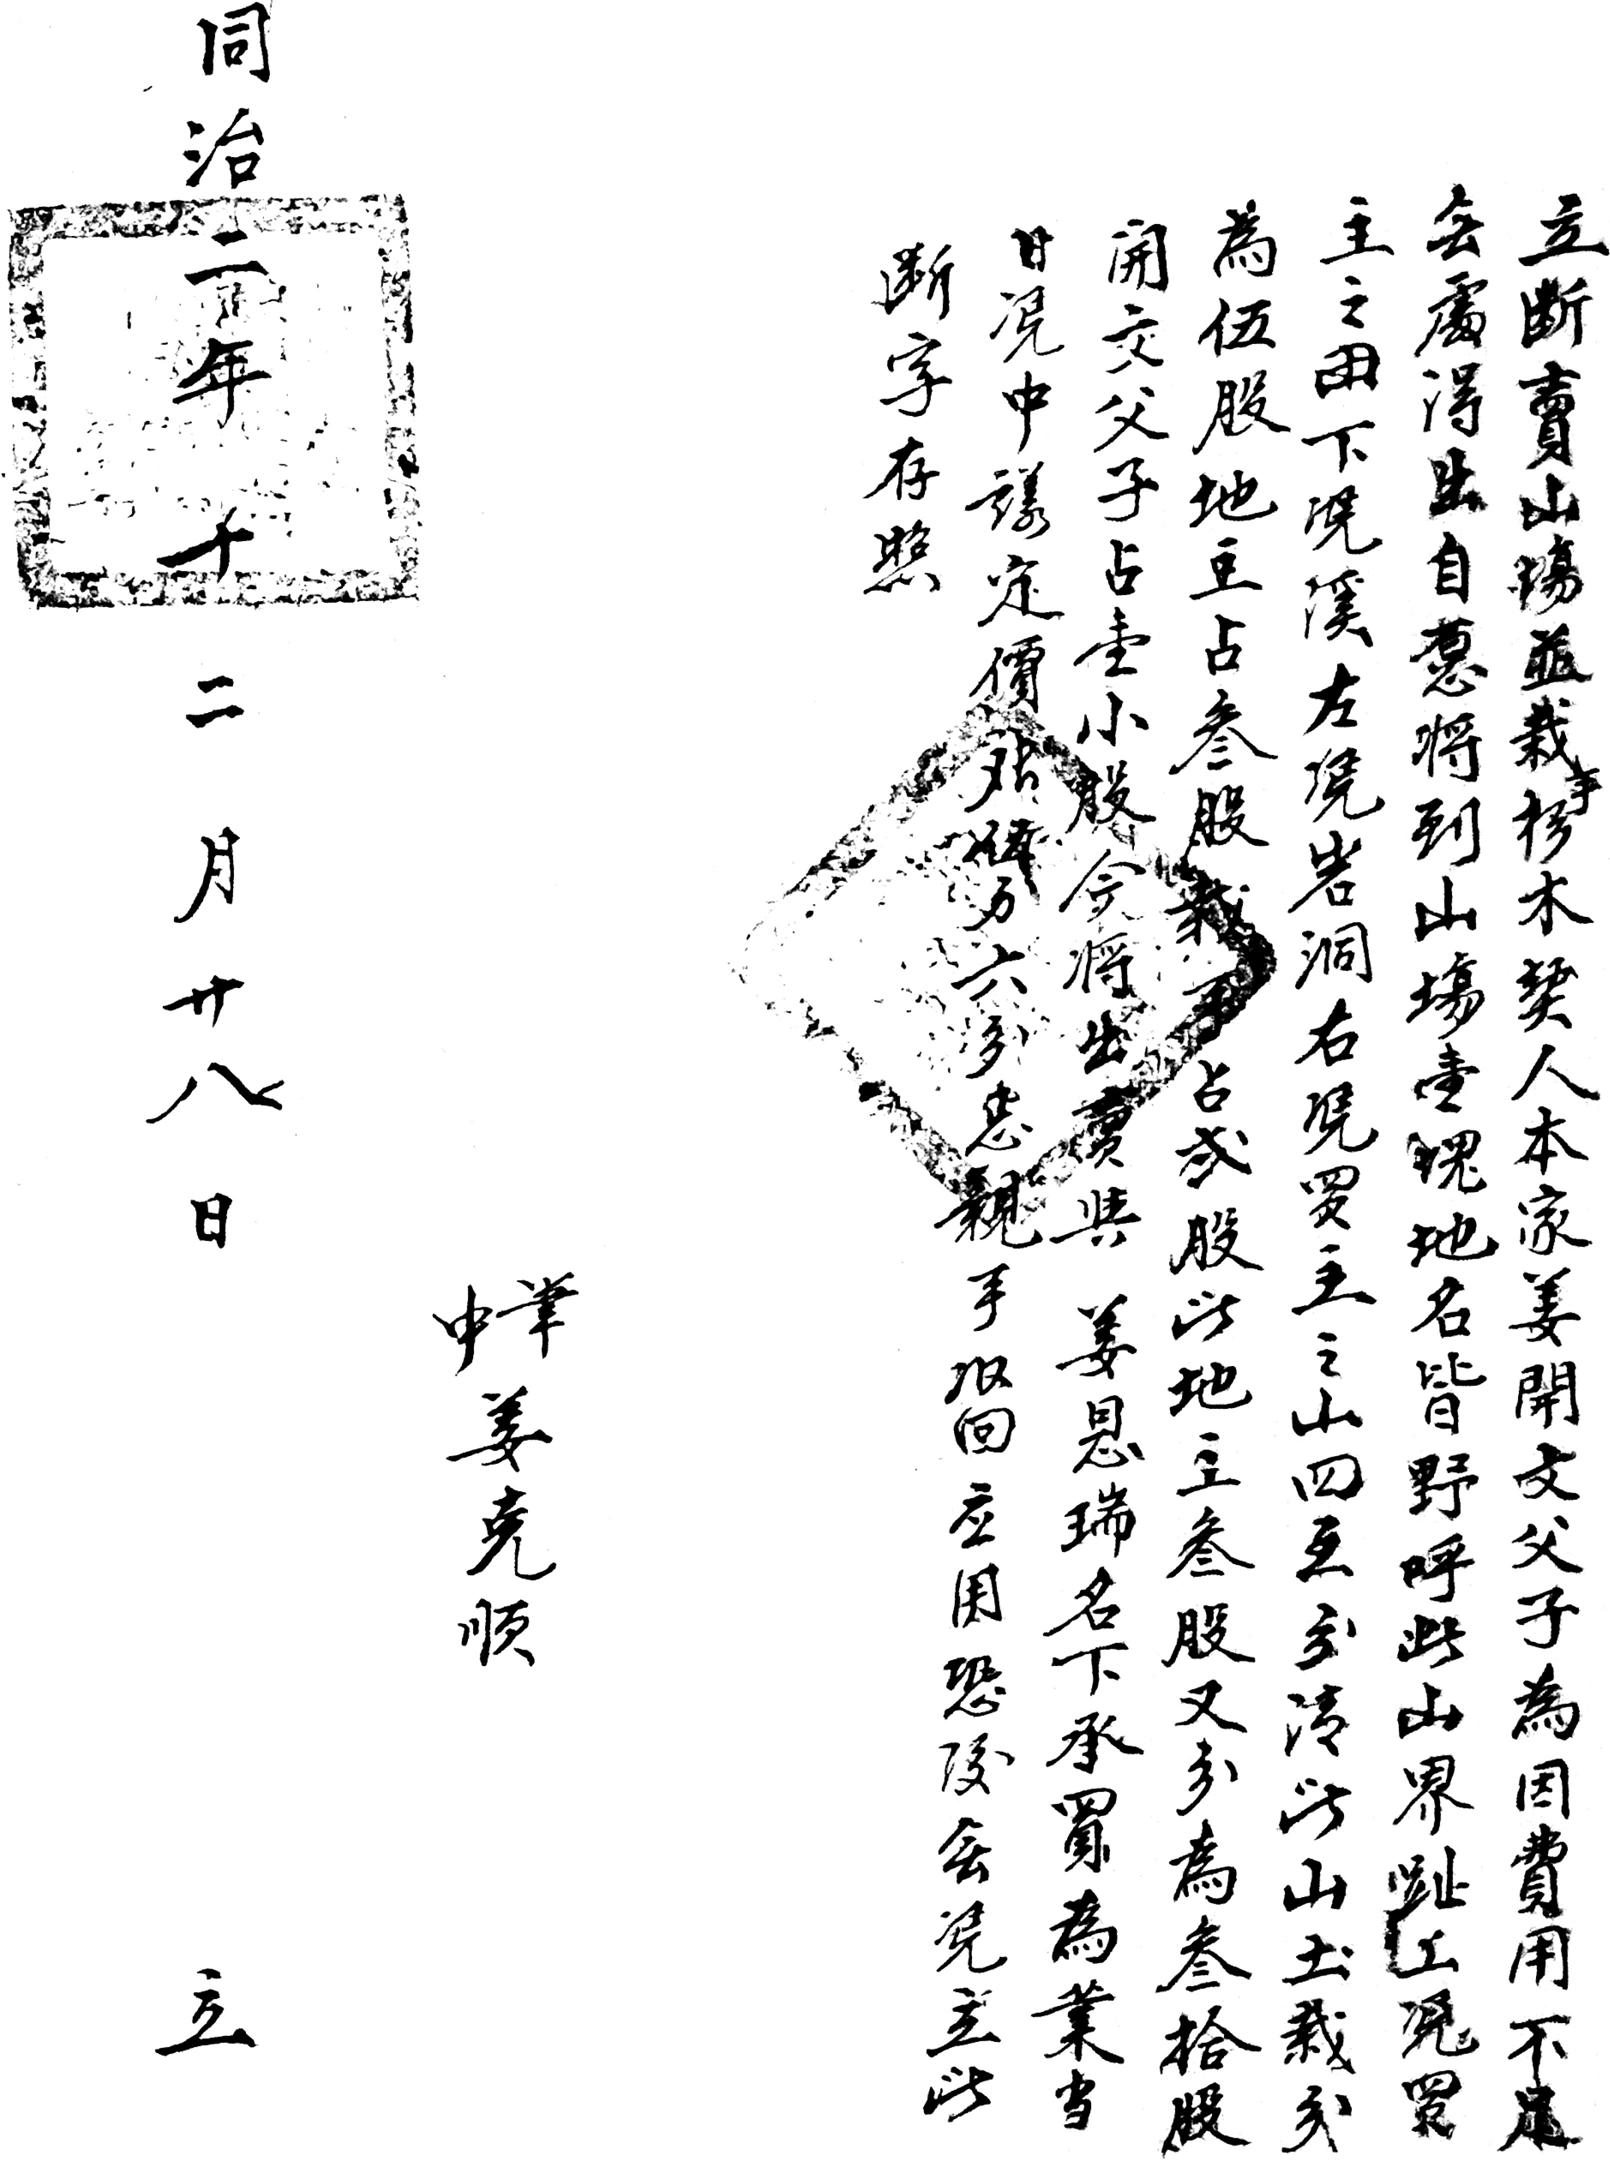 立斷賣山塲並栽手杉木契人本家姜開文父子為因費用不足
無處得出自愿將到山塲壹塊地名皆野呼此山界趾上凴買
主之田下凴溪左凴岩洞右凴買主之山四至分清此山土栽分
為伍股地主占叁股栽手占貳股此地主叁股又分為叁拾股
開文父子占壹小股今將出賣與姜恩瑞名下承買為業当
日凴中議定價艮六分忠親手收回应用恐後無凴立此
斷字存照
筆
中
姜克順
同治二年十二月廿八日立